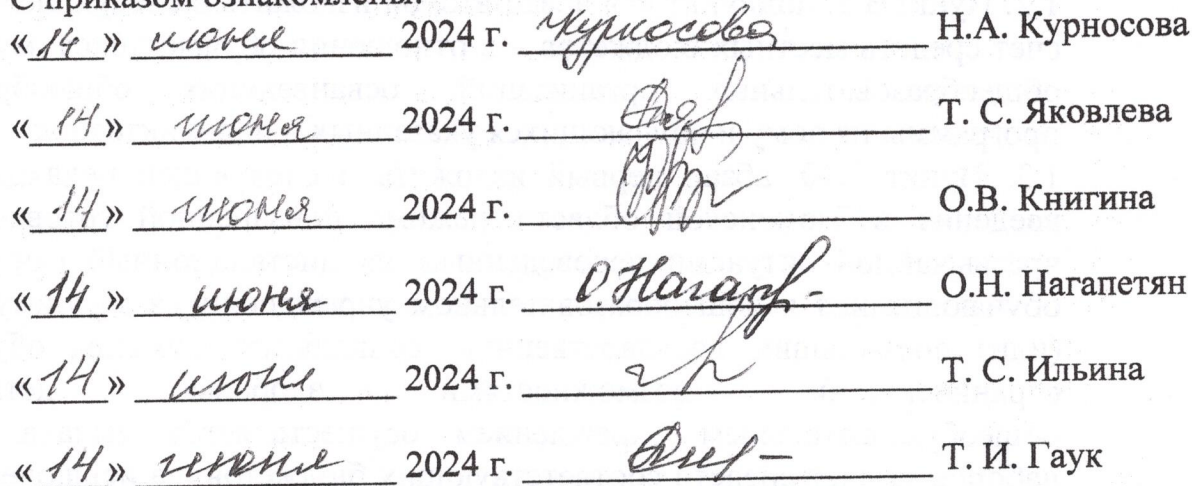 С приказом ознакомлены
«14» июня 2024 г. Курносова Н.А. Курносова
«14» июня 2024 г. Т. С. Яковлева
«14» июня 2024 г. О.В. Книгина
«14» июня 2024 г. О.Н. Нагапетян
«14» июня 2024 г. Т. С. Ильина
«14» июня 2024 г. Т. И. Гаук